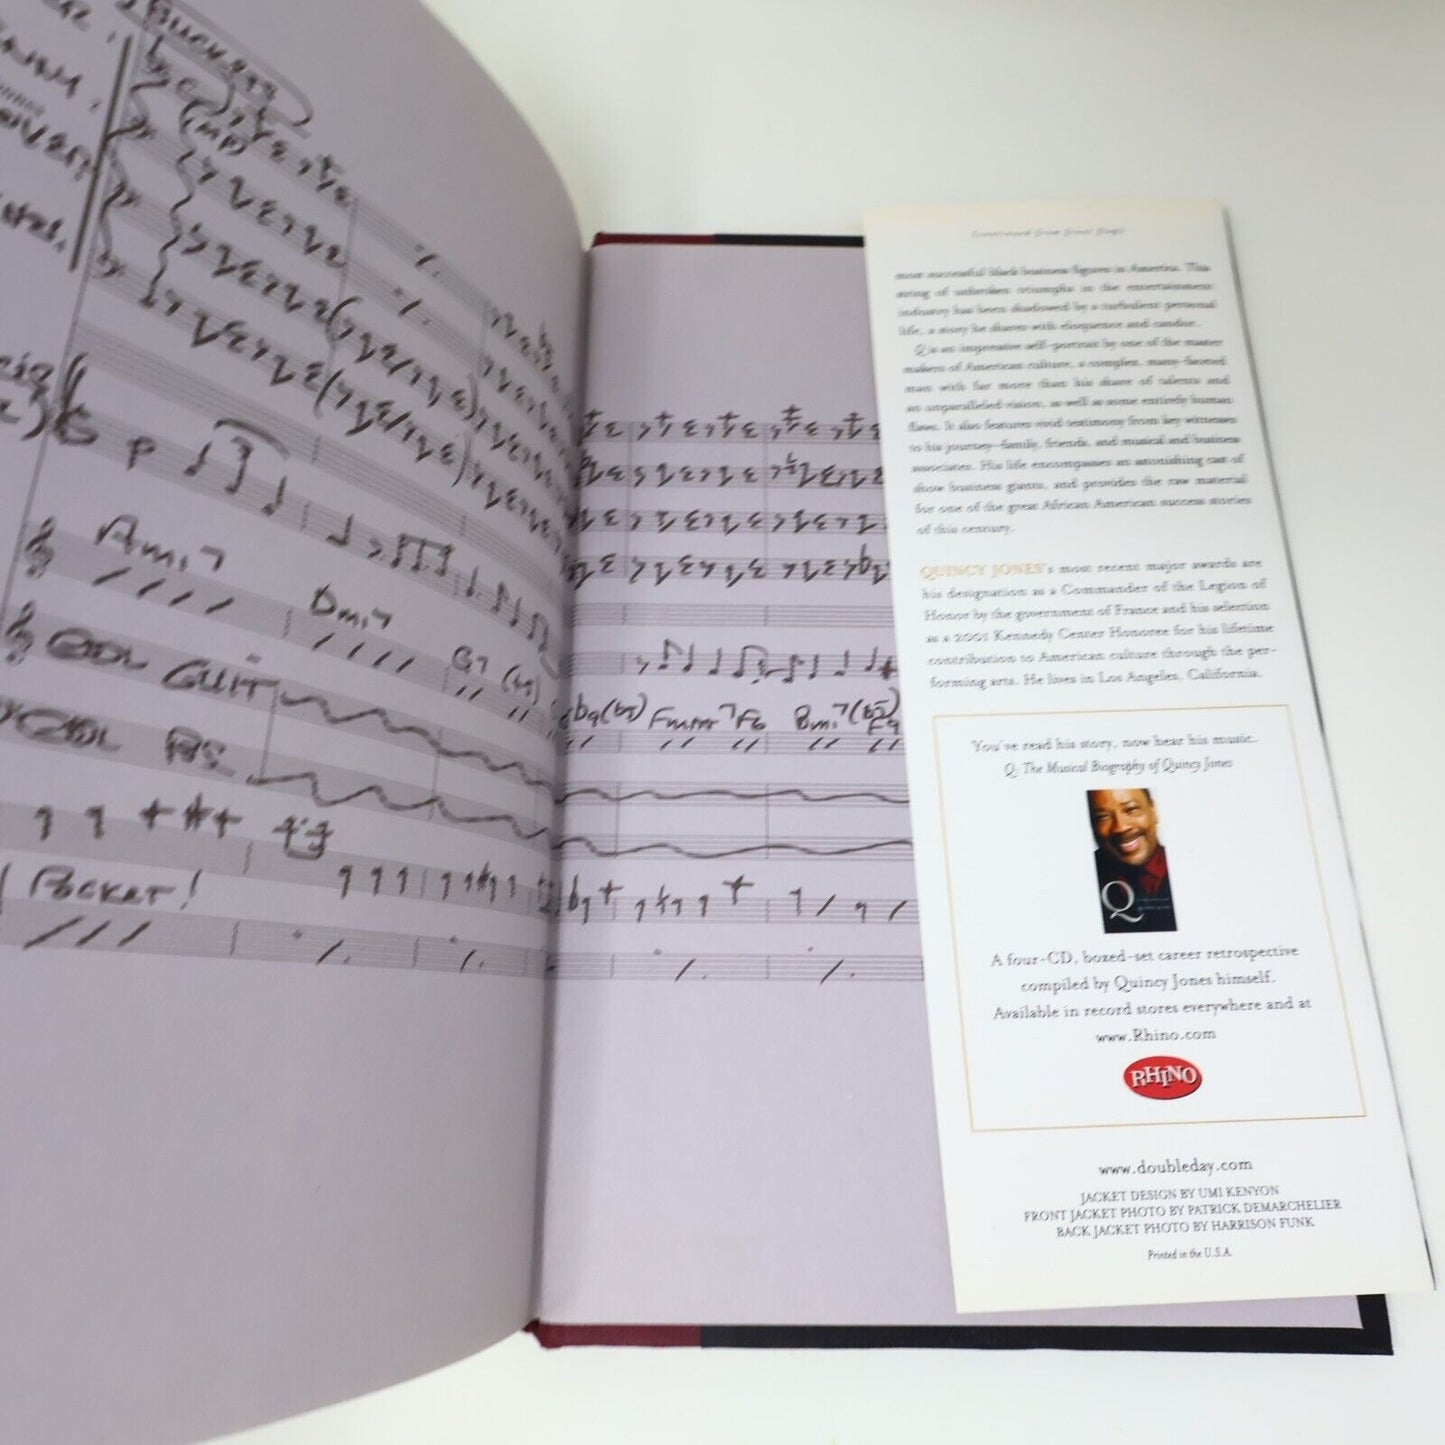 BUCK 299
(MP)
Ami7
Dmi7
G7
GUIT
POCKET!
(continued from front flap)
most successful black business figures in America. This
string of unbroken triumphs in the entertainment
industry has been shadowed by a turbulent personal
life, a story he shares with eloquence and candor.
Q is an impressive self-portrait by one of the master
makers of American culture, a complex, many-faceted
man with far more than his share of talents and
an unparalleled vision, as well as some entirely human
flaws. It also features vivid testimony from key witnesses
to his journey—family, friends, and musical and business
associates. His life encompasses an astonishing cast of
show business giants, and provides the raw material
for one of the great African American success stories
of this century.
QUINCY JONES's most recent major awards are
his designation as a Commander of the Legion of
Honor by the government of France and his selection
as a 2001 Kennedy Center Honoree for his lifetime
contribution to American culture through the per-
forming arts. He lives in Los Angeles, California.
You've read his story, now hear his music.
Q: The Musical Biography of Quincy Jones
Q
A four-CD, boxed-set career retrospective
compiled by Quincy Jones himself.
Available in record stores everywhere and at
www.Rhino.com
RHINO
www.doubleday.com
JACKET DESIGN BY UMI KENYON
FRONT JACKET PHOTO BY PATRICK DEMARCHELIER
BACK JACKET PHOTO BY HARRISON FUNK
Printed in the U.S.A.